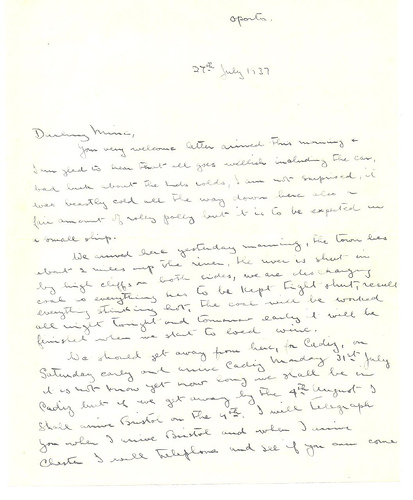 Oporto.
27th July 1937
Darling Minnie,
You very welcome letter arrived this morning &
I am glad to hear that all goes wellish including the car,
bad luck about the kids colds, I am not surprised, it
was beastly cold all the way down here also a
fair amount of roley poley but it is to be expected in
a small ship.
We arrived here yesterday morning, the town lies
about 2 miles up the river, the river is shut in
by high cliffs on both sides, we are discharging
coal so everything has to be kept tight shut, result
everything stinking hot, the coal will be worked
all night tonight and tomorrow early it will be
finished when we start to load wine.
We should get away from here, for Cadiz, on
Saturday early and arrive Cadiz Monday 31st July
it is not know yet how long we shall be in
Cadiz but if we get away by the 4th August I
shall arrive Bristol on the 9th. I will telegraph
you when I arrive Bristol and when I arrive
Chester I will telephone and see if you can come